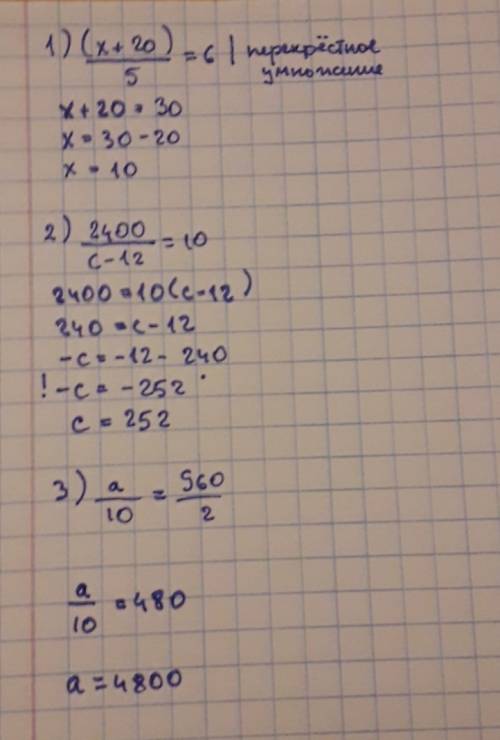 1) (x+20)/5 = 6 | перекрёстное
умножение
x+20 = 30
x = 30-20
x = 10
2) 2400/(c-12) = 10
2400 = 10(c-12)
240 = c-12
-c = -12- 240
! -c = -252
c = 252
3) a/10 = 960/2
a/10 = 480
a = 4800